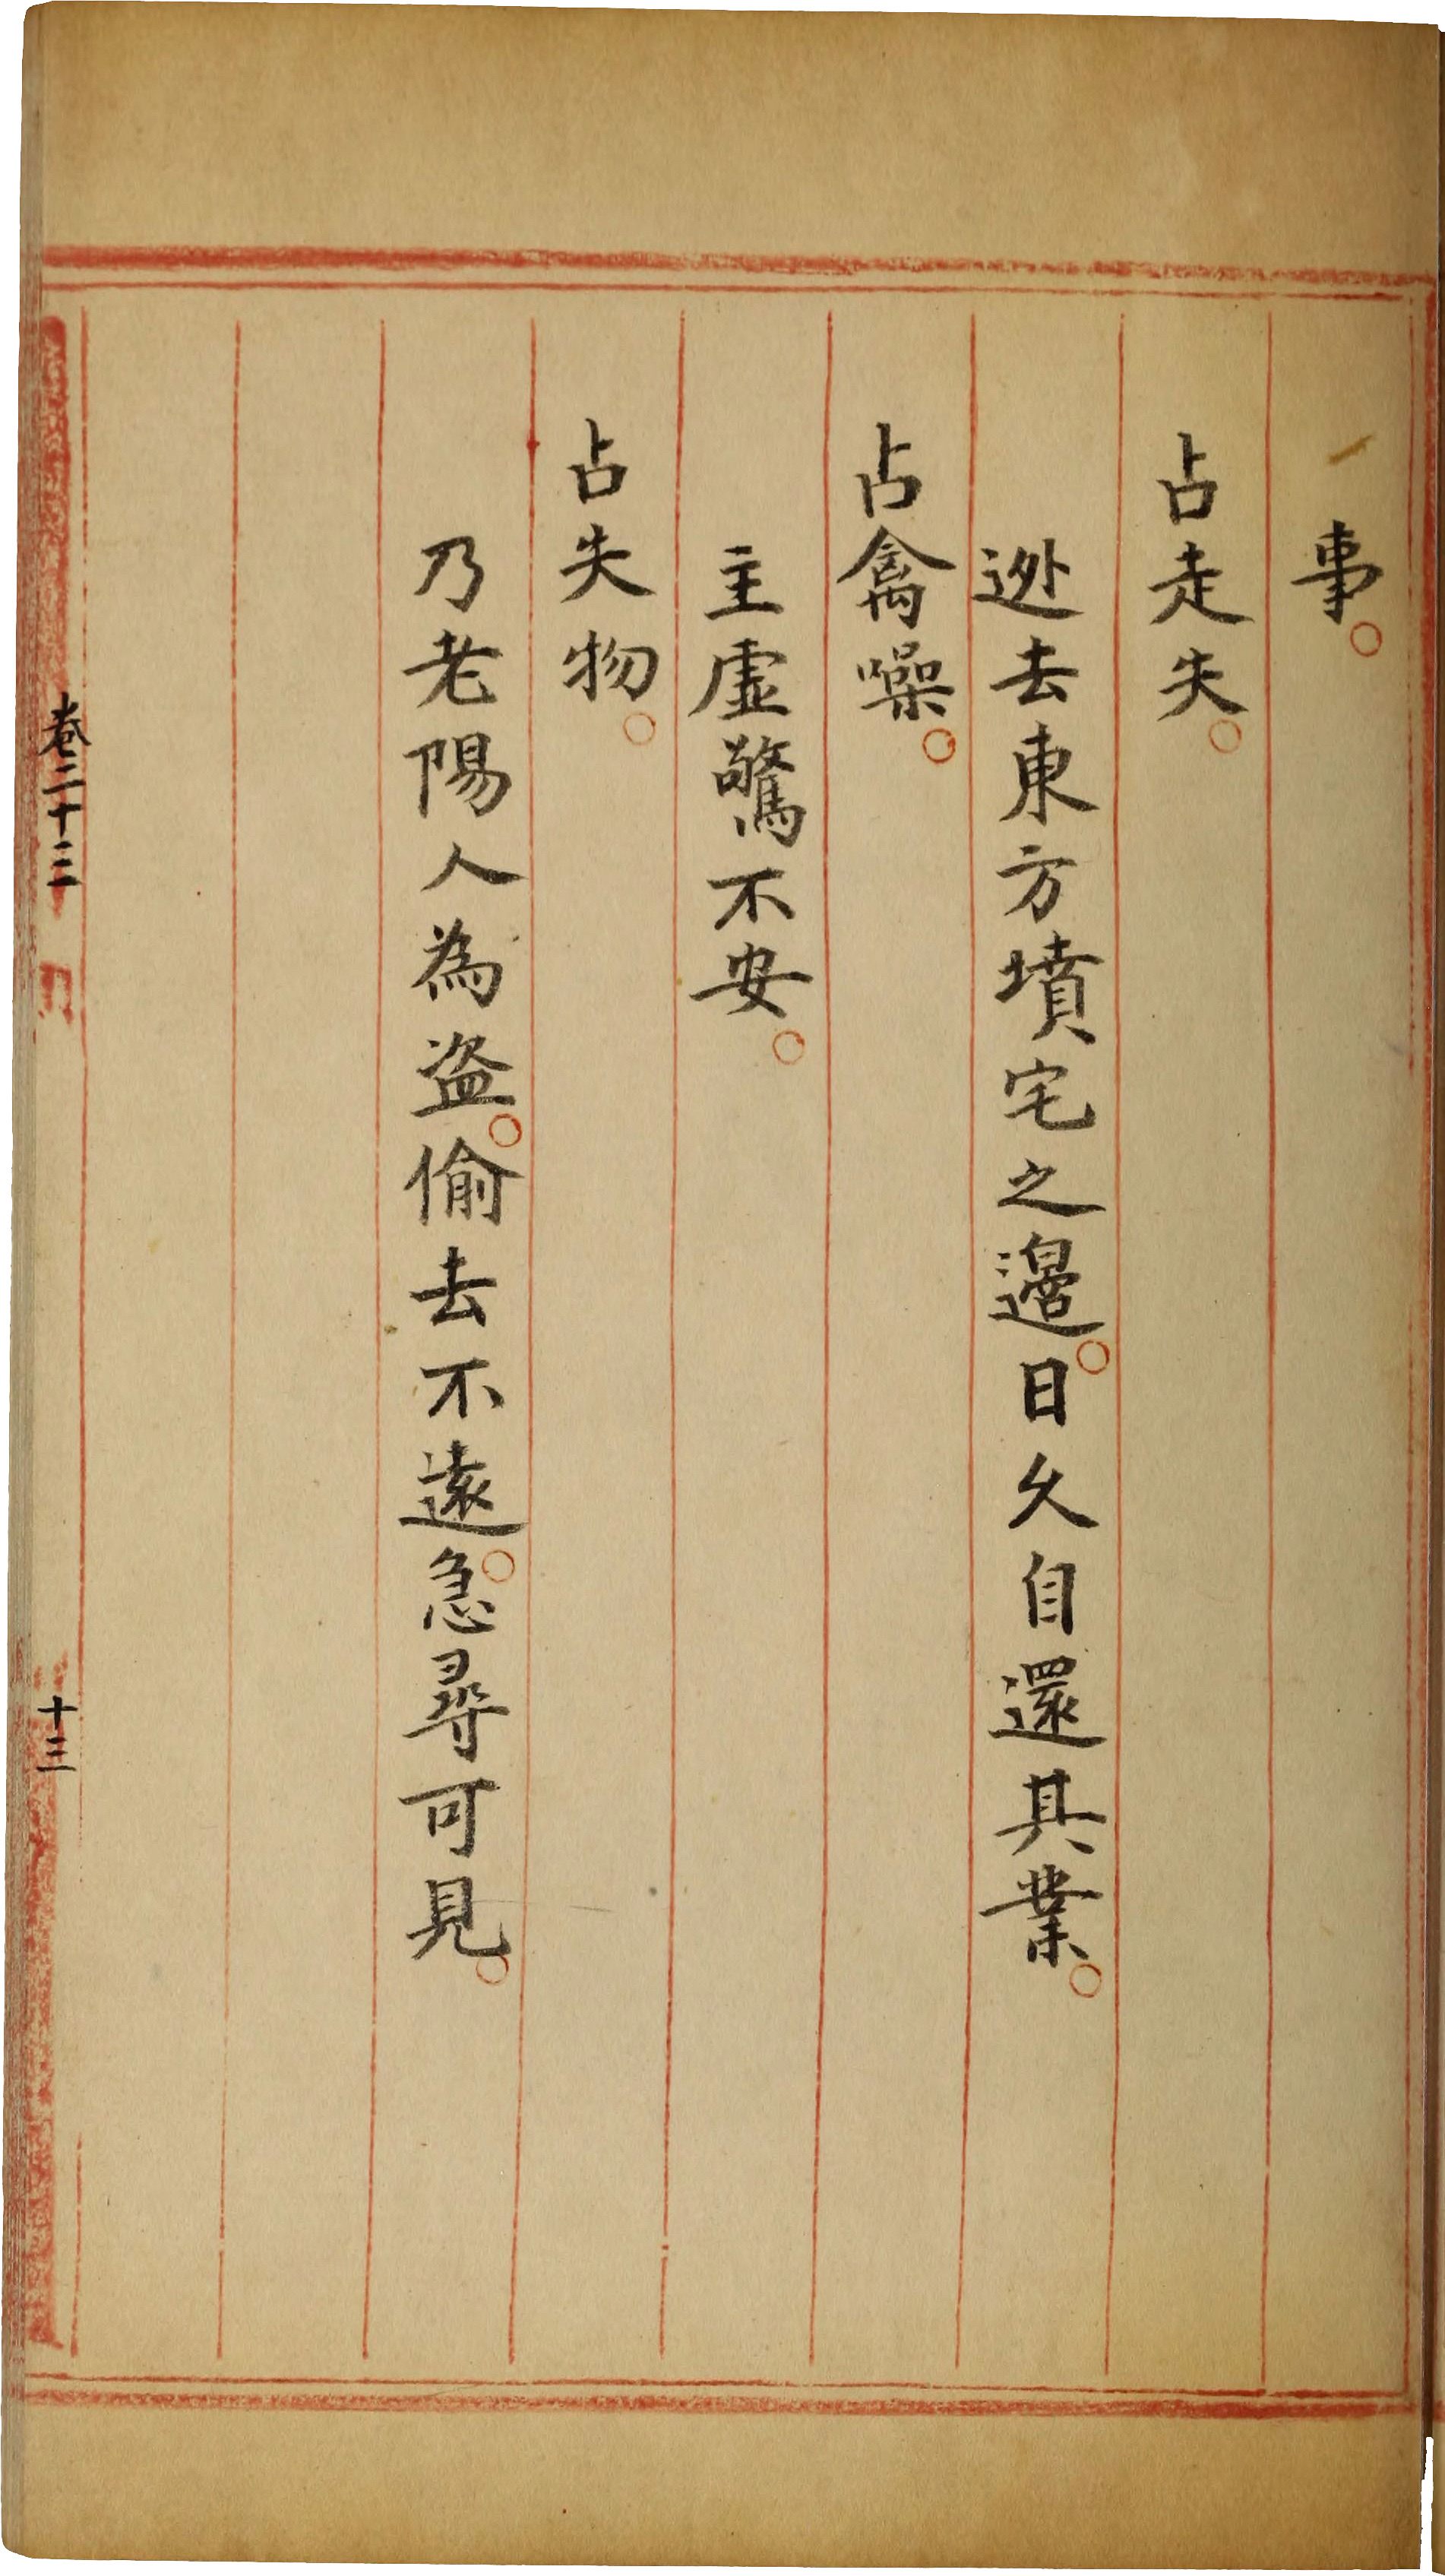 事。
占走失。
迯去東方墳宅之邉。日久自還其業。
占禽噪。
主虛驚不安。
占失物。
乃老陽人為盜。偷去不遠。急尋可見。
卷二十三
十三